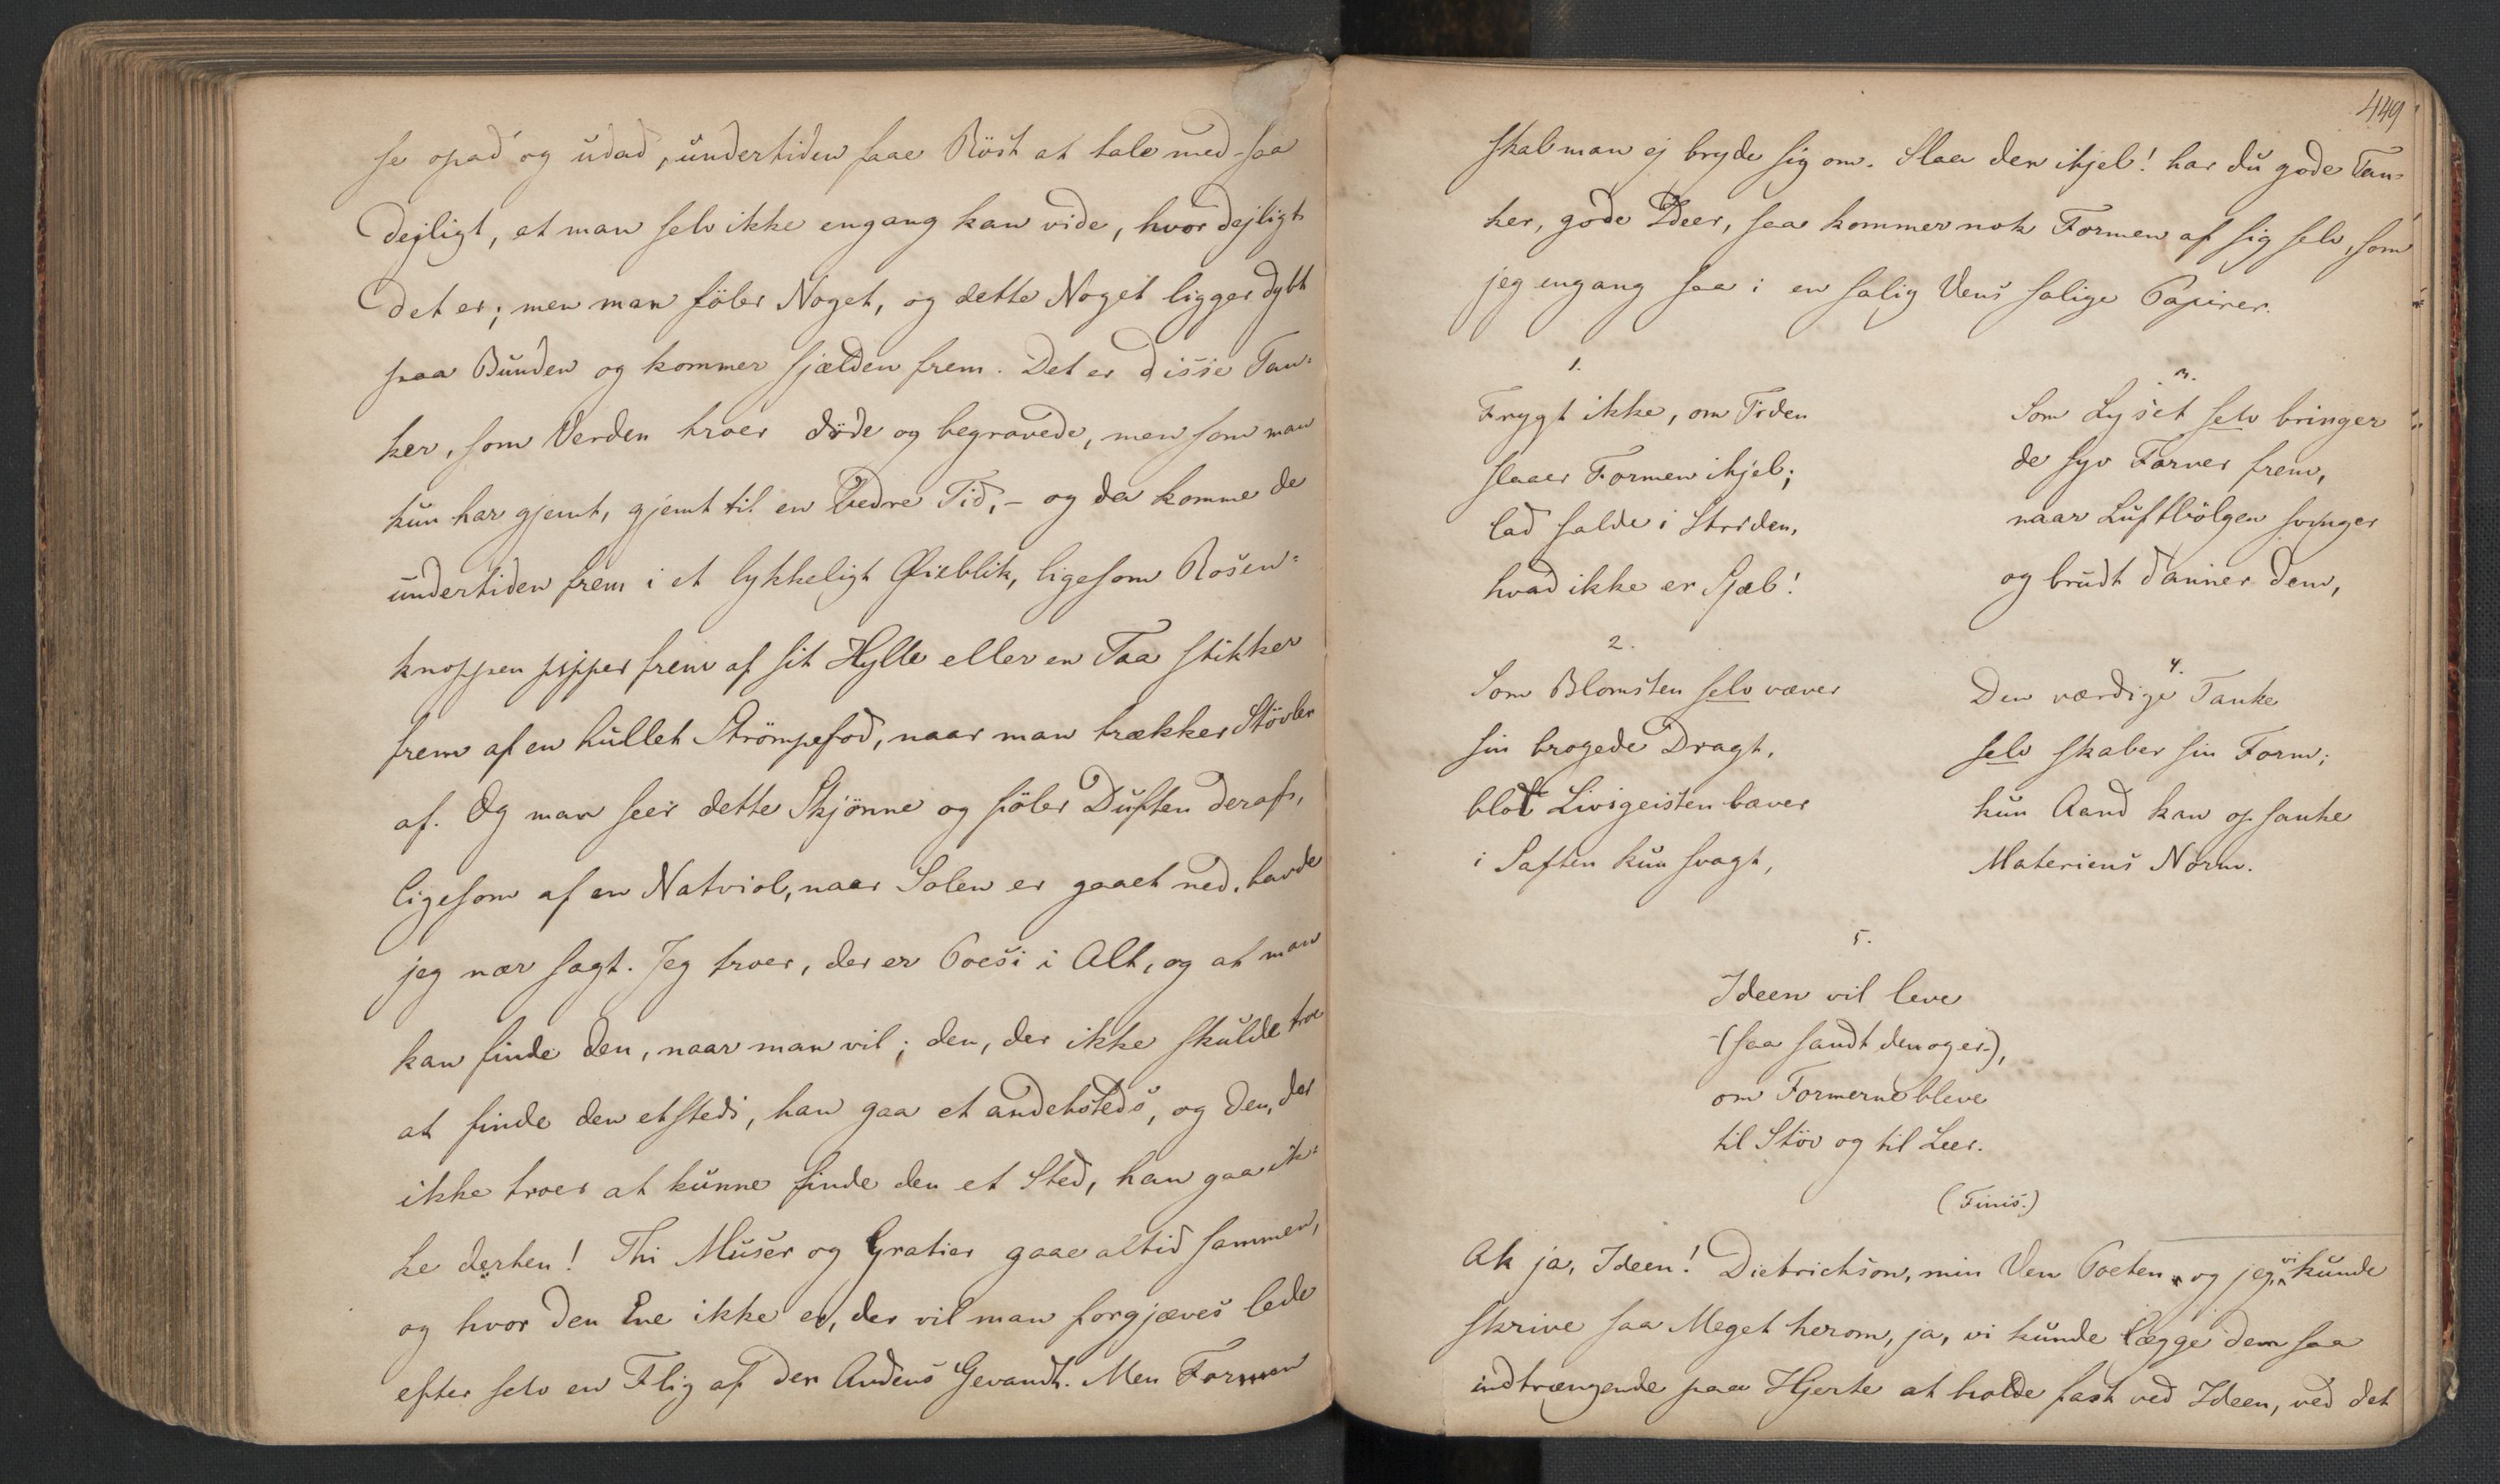 se opad og udad, undertiden faae Röst at tale med - saa
dejligt, at man selv ikke engang kan vide, hvor dejligt
det er; men man föler Noget, og dette Noget ligger dybt
paa Bunden og kommer sjælden frem. Det er disse Tan-
ker, som Verden troer döde og begravede, men som man
kun har gjemt, gjemt til en bedre Tid, - og da komme de
undertiden frem i et lykkeligt Øieblik, ligesom Rosen-
knoppen pipper frem af sit Hylle eller en Taa stikker
frem af en hullet Strömpefod, naar man trækker Stövler
af. Og man seer dette Skjönne og föler Duften deraf,
ligesom af en Natviol, naar Solen er gaaet ned, havde
jeg nær sagt. Jeg troer, der er Poesi i Alt, og at man
kan finde den, naar man vil; den, der ikke skulde troe
at finde den etsteds, han gaa et andetsteds, og den, der
ikke troer at kunne finde den et Sted, han gaa ik-
ke derhen! Thi Muser og Gratier gaae altid sammen,
og hvor den Ene ikke er, der vil man forgjæves lede
efter selv en Flig af den Andens Gevandt. Men Formen
449
skal man ej bryde sig om. Slaa den ihjel! har du gode Tan-
ker, gode Ideer, saa kommer nok Formen af sig selv, som
jeg engang saa i en salig Vens salige Papirer.
1.
Frygt ikke, om Tiden
slaaer Formen ihjel;
lad falde i Striden,
hvad ikke er Sjæl!
2.
Som Blomsten selv væver
sin brogede Dragt,
blot Livsgeisten bæver
i Saften kun svagt,
3.
Som Lyset selv bringer
de syv Farver frem,
naar Luftbölgen svinger
og brudt danner dem,
4.
Den værdige Tanke
selv skaber sin Form;
kun Aand kan opsanke
Materiens Norm.
5.
Ideen vil leve
(saa sandt den og er),
om Formerne bleve
til Stöv og til Leer.
(Finis.)
Ak ja, Ideen! Dietrichson, min Ven Poeten, og jeg, vi kunde
skrive saa Meget herom, ja, vi kunde lægge dem saa
indtrængende paa Hjerte at holde fast ved Ideen, ved det